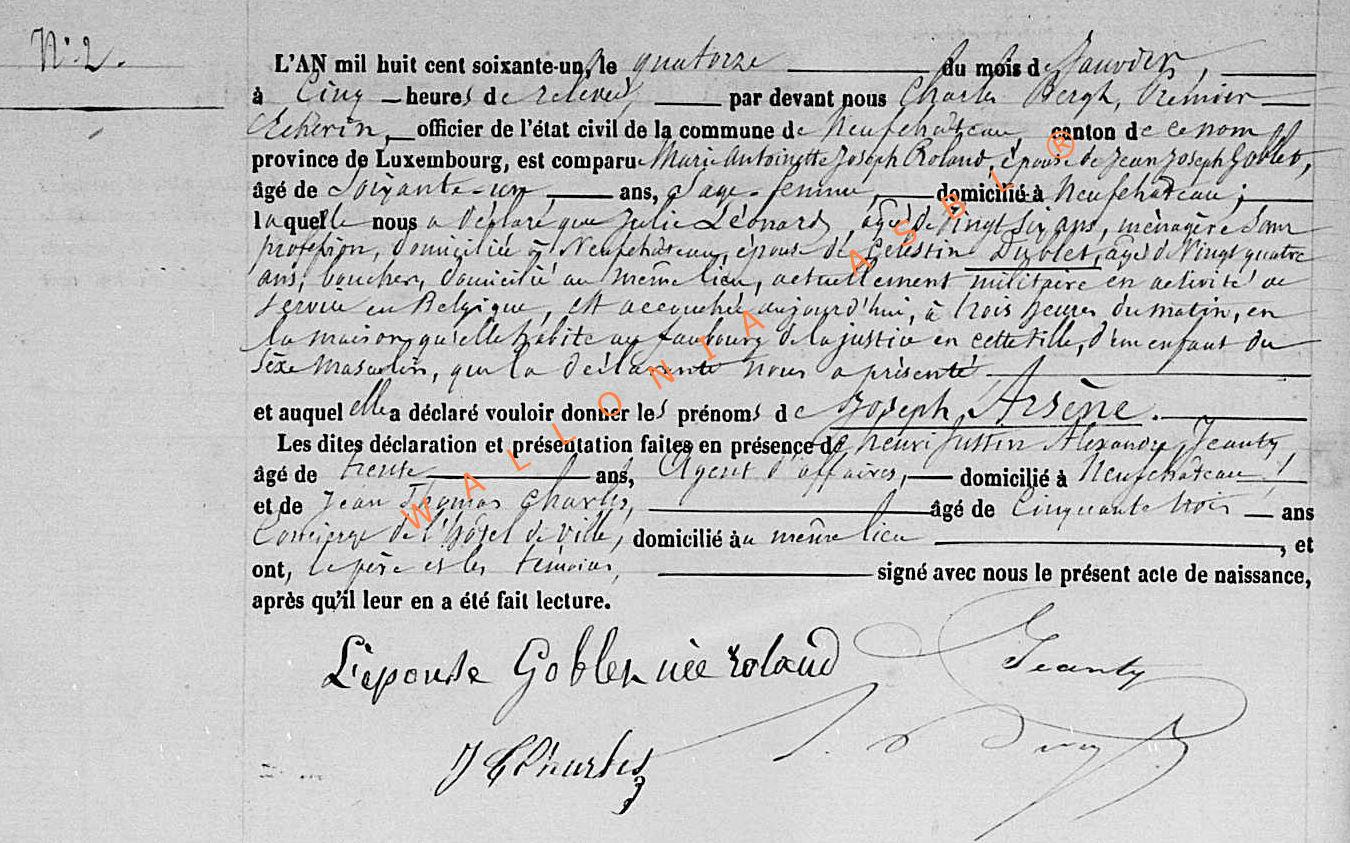 N° 2.
L'AN mil huit cent soixante-un, le quatorze du mois de Janvier,
à Cinq heures de relevée, par devant nous Charles Bergh, Premier
Echevin, officier de l'état civil de la commune de Neufchâteau canton de ce nom
province de Luxembourg, est comparue Marie Antoinette Joseph Roland, épouse de Jean Joseph Goblet,
âgé de Soixante-un ans, Sage-femme, domicilié à Neufchâteau;
laquelle nous a déclaré que Julie Léonard, âgée de vingt six ans, ménagère sans
profession, domiciliée à Neufchâteau, épouse de Célestin Dizolet, âgé de Vingt quatre
ans, boucher, domicilié au même lieu, actuellement militaire en activité de
service en Belgique, est accouchée aujourd'hui, à trois heures du matin, en
la maison qu'elle habite au faubourg de la justice en cette Ville, d'un enfant du
sèxe masculin, que la déclarante nous a présenté
et auquel elle a déclaré vouloir donner les prénoms de Joseph, Arsène.
Les dites déclaration et présentation faites en présence de henri Justin Alexandre Jeanty,
âgé de trente ans, Agent d'affaires, domicilié à Neufchâteau,
et de Jean Thomas Charles, âgé de Cinquante trois ans
Concierge de l'hôtel de ville, domicilié au même lieu, et
ont, le père et les témoins, signé avec nous le présent acte de naissance,
après qu'il leur en a été fait lecture.
L'épouse Goblet née roland
Jeanty
J T Charles
WALLONIA ASBL ®